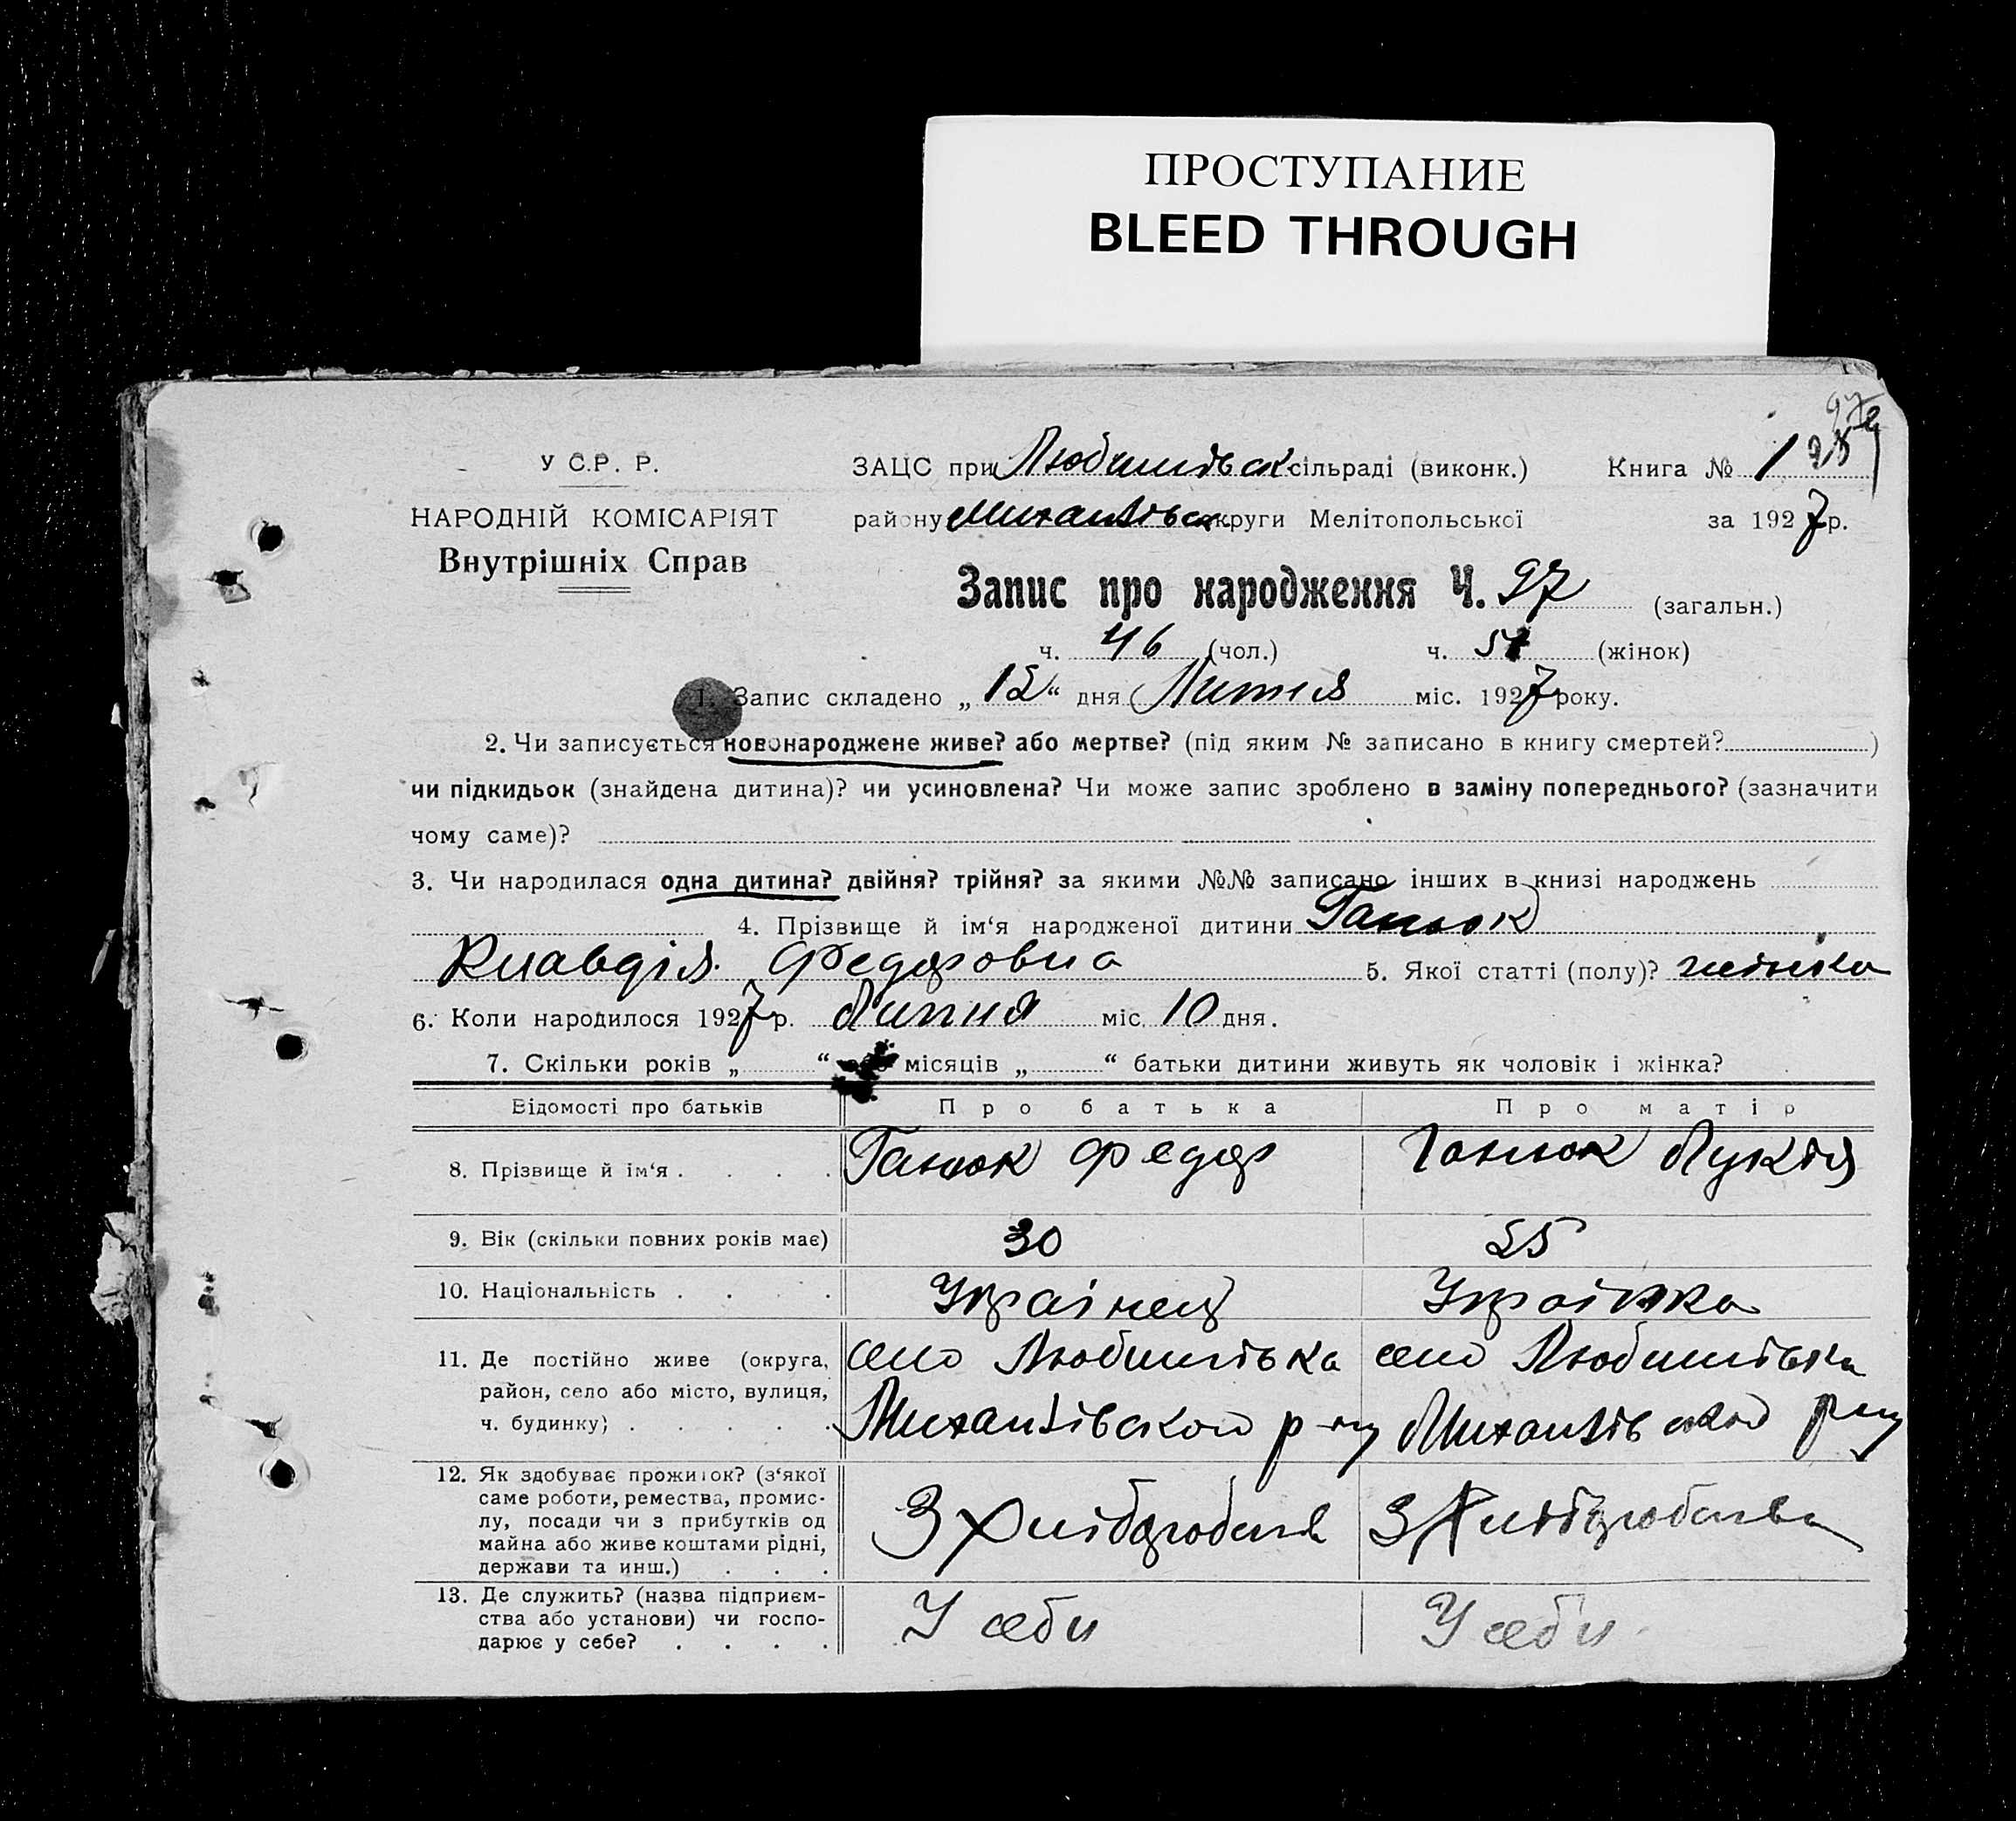 ПРОСТУПАНИЕ
BLEED THROUGH
У С.Р. Р.
НАРОДНІЙ КОМІСАРІЯТ
Внутрішніх Справ
ЗАЦС при Любимівськ сільраді (виконк.) Книга № 1
району Михайлівськ округи Мелітопольської за 1927 р.
Запис про народження Ч. 97 (загальн.)
ч. 46 (чол.) ч. 51 (жінок)
1. Запис складено „ 12 “ дня Липня міс. 1927 року.
2. Чи записується новонароджене живе? або мертве? (під яким № записано в книгу смертей? )
чи підкидьок (знайдена дитина)? чи усиновлена? Чи може запис зроблено в заміну попереднього? (зазначити
чому саме)?
3. Чи народилася одна дитина? двійня? трійня? за якими №№ записано інших в книзі народжень
4. Прізвище й ім‘я народженої дитини Ганюк
Клавдія Федоровна 5. Якої статті (полу)? жінка
6. Коли народилося 1927 р. Липня міс. 10 дня.
7. Скільки років „ “ або місяців „ “ батьки дитини живуть як чоловік і жінка?
Відомості про батьків Про батька Про матір
8. Прізвище й ім‘я . . . . Ганюк Федор Ганюк Лукія
9. Вік (скільки повних років має) 30 25
10. Національність . . . . Украінец Украінка
11. Де постійно живе (округа, село Любимівка село Любимівка
район, село або місто, вулиця,
ч. будинку) . . . . . Михайлівской р-ну Михайлівской р-ну
12. Як здобуває прожиток? (з‘якої
саме роботи, ремества, промис-
лу, посади чи з прибутків од З З
майна або живе коштами рідні,
держави та инш.) . . .
13. Де служить? (назва підприєм-
ства або установи) чи госпо- У себи У себи
дарює у себе? . . . .